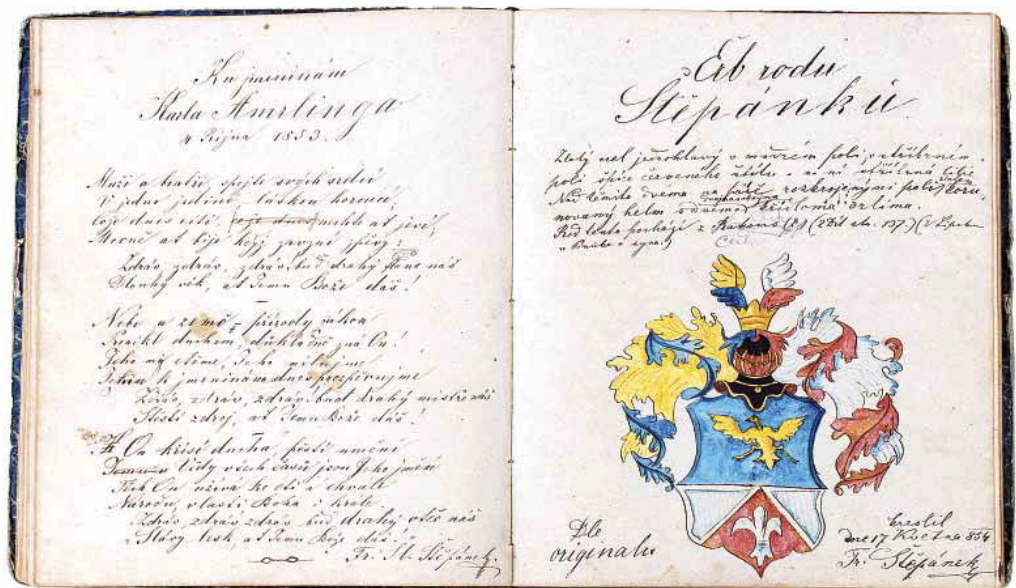 Ku jmeninám
Karla Amrlinga
4 Října 1853.
Muži a bratři, spojte svých srdcí
V jedno jediné, láskou horoucí,
nechť ať jeví,
Mocně ať bije když zpěvy:
Zdráv, zdráv, zdráv buď drahý náš
Dlouhý věk, ať Jemu Bože dáš!
Nebe a země přírody zákon
duchem, důkladně zná On!
Jeho my ctíme, Jeho milujme
k jmeninám dnes prozpěvujme
Zdráv, zdráv, zdráv buď drahý mistr náš
Štěstí zdroj, ať Jemu Bože dáš!
On křísí ducha, pěstí umění
vždy všech jsou Jeho jmění
On užívá ke cti a chvále
Národu, vlasti Boha i krále
Zdráv, zdráv, zdráv buď drahý otče náš
Slávy lesk, ať Jemu Bože dáš!
Fr. St. Štěpánek
Erb rodu
Štěpánků
Zlatý orel jednohlavý v modrém poli, v stříbrném
poli špice červeného štítu a v ní stříbrná lilie
Nad tímto dvema rozkrojenými poli koru-
novaný helm s dvema křídloma orlíma.
Rod tento pochází z (2 Díl str. 137.)
Čech
Dle
originalu
kreslil
dne 17 Května 854
Fr. Štěpánek